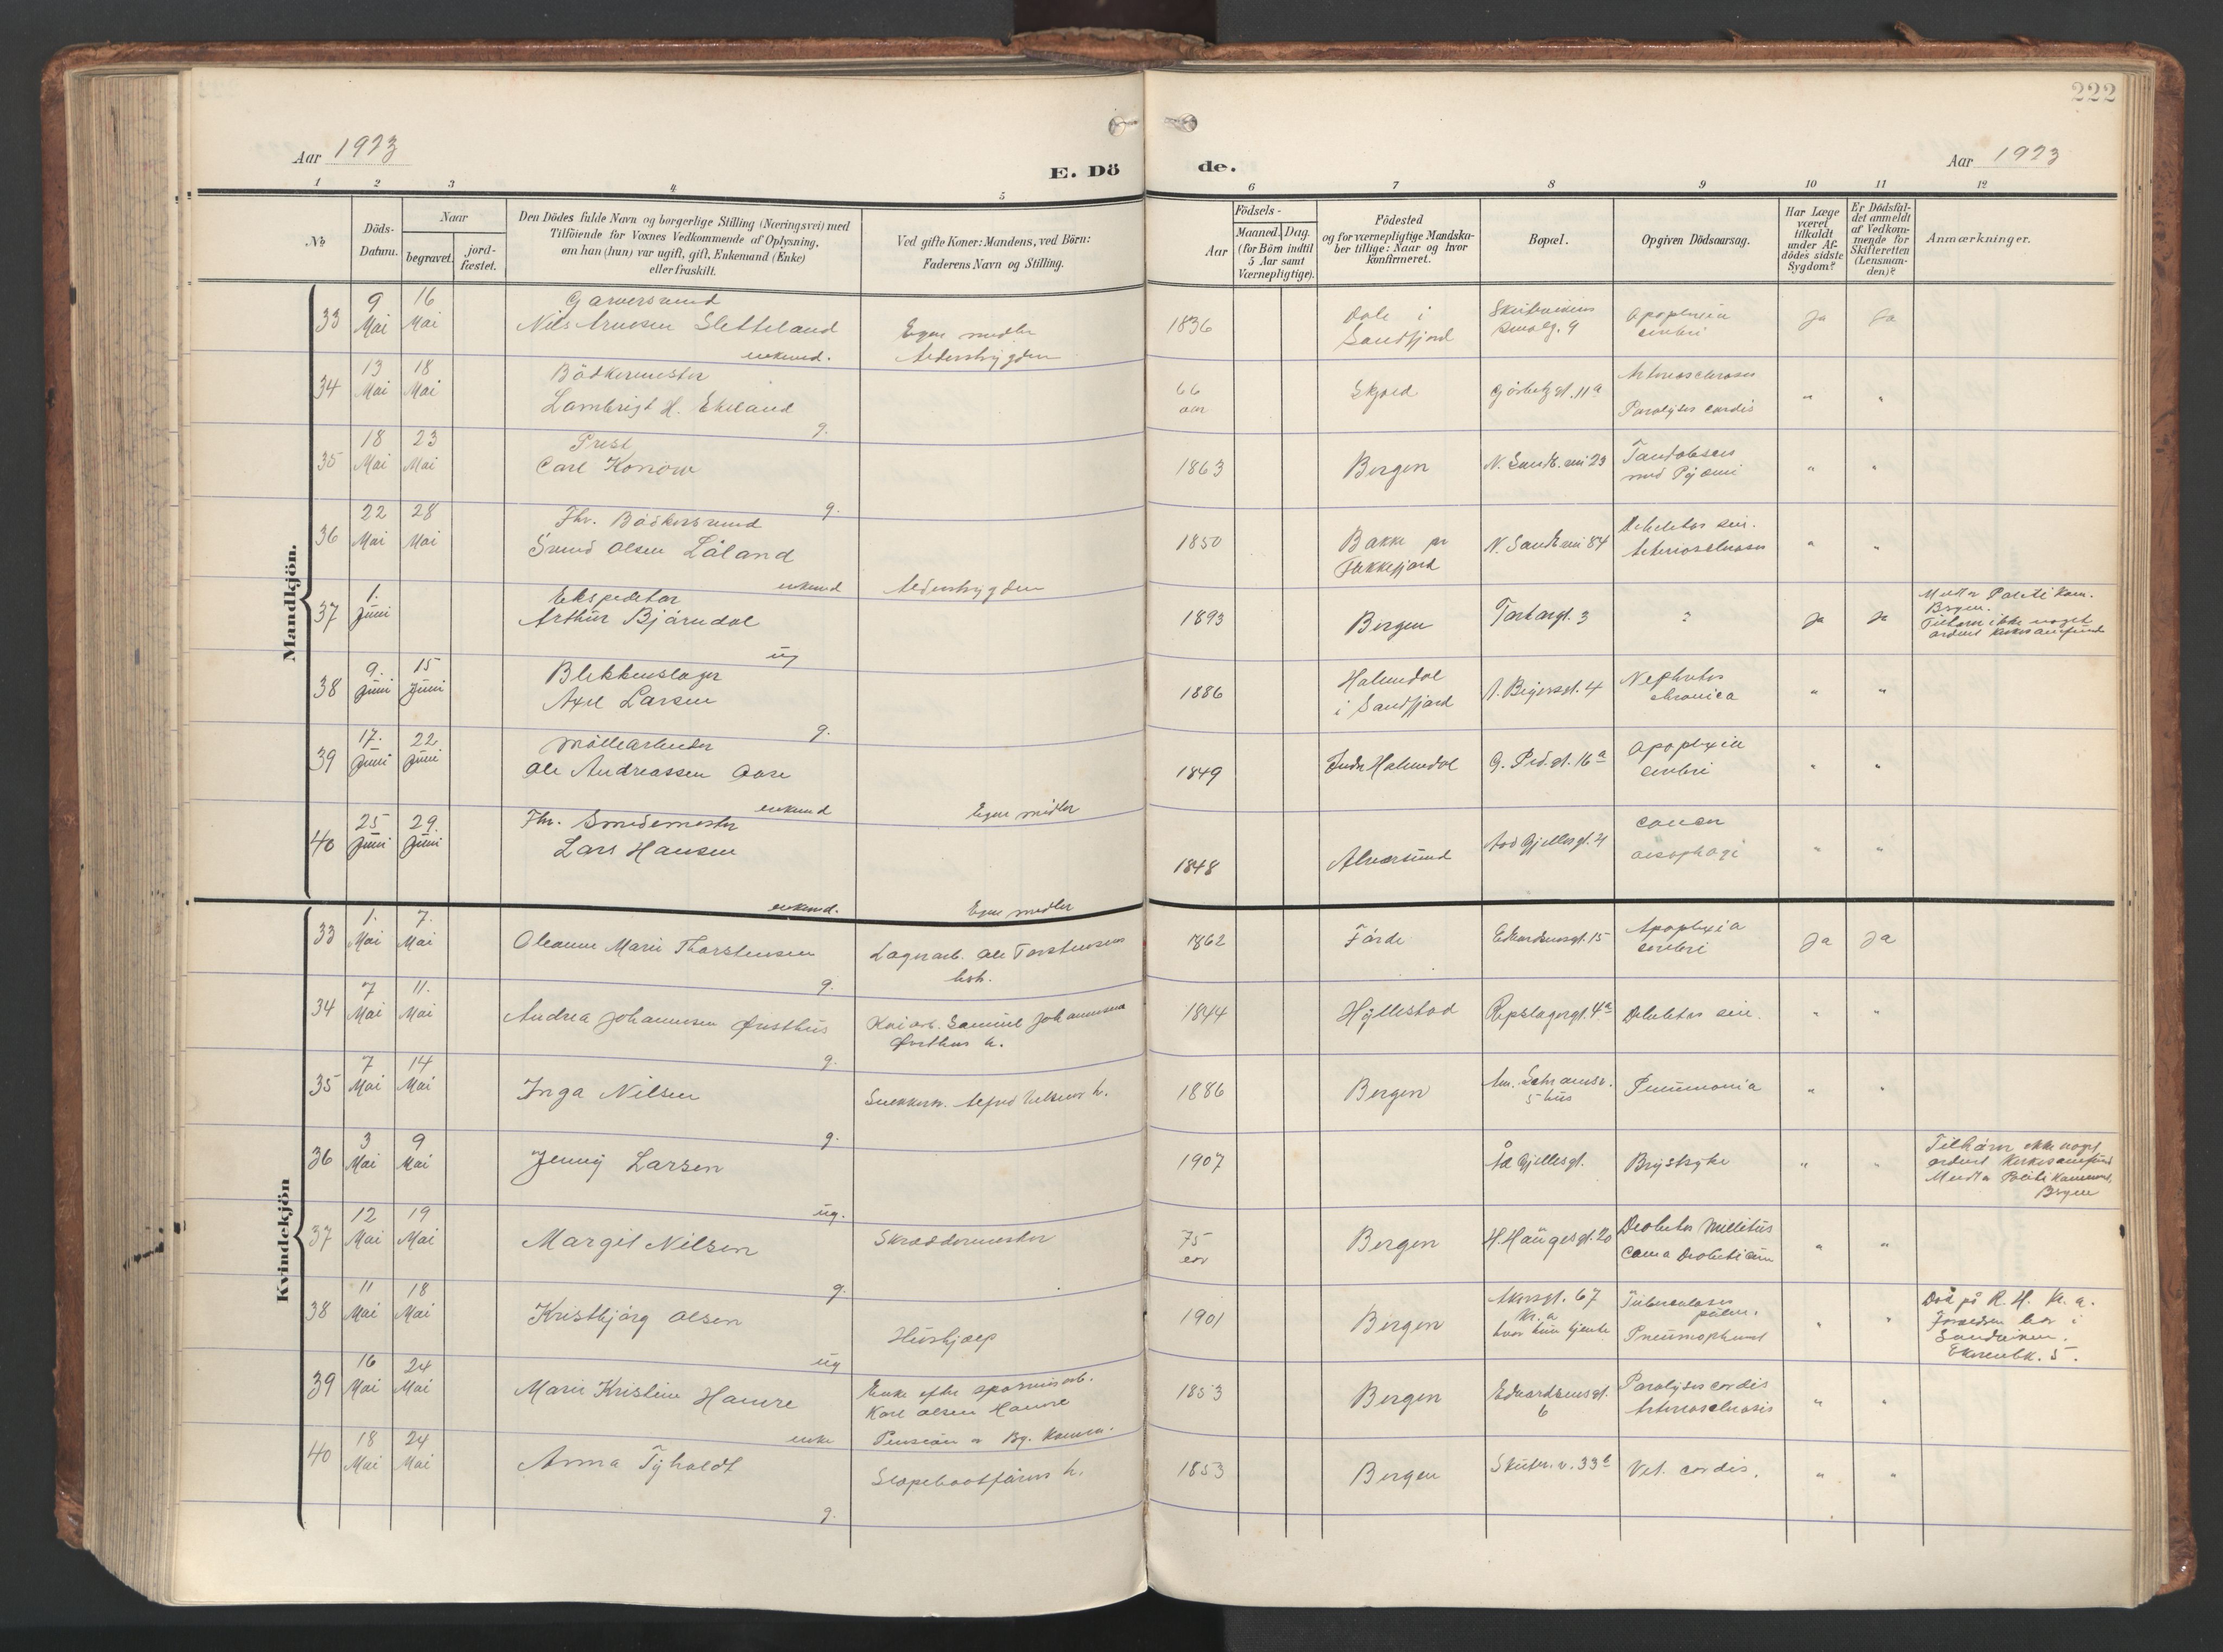 222
Aar 1923
E. Dö
de.
Aar 1923
1 2 3 4 5 6 7 8 9 10 11 12
No
Döds-
Datum.
Naar
begravet.
jord-
fæstet.
Den Dödes fulde Navn og borgerlige Stilling (Næringsvei) med
Tilföiende for Voxnes Vedkommende af Oplysning,
om han (hun) var ugift, gift, Enkemand (Enke)
eller fraskilt.
Ved gifte Koner: Mandens, ved Börn:
Faderens Navn og Stilling.
Födsels-
Aar
Maaned. Dag.
(for Børn indtil
5 Aar samt
Værnepligtige).
Födested
og for værnepligtige Mandska-
ber tillige: Naar og hvor
konfirmeret.
Bopæl.
Opgiven Dödsaarsag.
Har Læge
været
tilkaldt
under Af-
dödes sidste
Sygdom?
Er Dödsfal-
det anmeldt
af Vedkom-
mende for
Skifteretten
(Lensman-
den)?
Anmærkninger.
Mandkjön.
33 9 Mai 16 Mai
Garversvend
Nils Arnesen Sletteland
enkemd.
Egne midler
Alderstrygden
1836
Dale i
Sandfjord
Apoplexia
cerebri
Ja Ja
34 13 Mai 18 Mai
Bödkermester
Lambrigt H. Ekeland
g.
66
aar
Skjold
11a
Arteriosclerosis
Paralysis cordis
" "
35 18 Mai 23 Mai
Prest
Carl Konow
g.
1863
Bergen
N. Sandk.vei 23
med Pyæmi
" "
36 22 Mai 28 Mai
Fhv. Bödkersvend
Svend Olsen Låland
enkemd
Alderstrygden
1850
Bakke pr
Flekkefjord
N. Sandk.vei 84
Debilitas sen.
Arteriosclerosis
" "
37 1. Juni
Ekspeditör
Arthur Bjørndal
ug
1893
Bergen
Torborgt. 3
?
Ja Ja
Meldt Politikam.
Bergen.
Tilhører ikke noget
ordnet kirkesamfund
38 9. Juni 15 Juni
Blikkenslager
Axel Larsen
g.
1886
Holmedal
i Sandfjord
4
Nephritis
chronica
" "
39 17. Juni 22 Juni
Möllearbeider
Ole Andreassen Aase
enkemd
Egne midler
1849
Indr Holmedal
16a
Apoplexia
cerebri
" "
40 25 Juni 29. Juni
Fhv. Smedemester
Lars Hansen
enkemd.
Egne midler
1848
Alversund
Aad Gjellesgt. 21
Cancer
oesophagi
" "
Kvindekjön
33 1. Mai 7. Mai
Oleanne Marie Thorstensen
g.
Lagerarb. Ole Torstensens
hst.
1862
Förde
Edvardsensgt. 15
Apoplexia
cerebri
Ja Ja
34 7 Mai 11. Mai
Andrea Johannesen Østhus
g.
Kaiarb. Samuel Johannesen
Østhus h.
1844
Hyllestad
Repslagergt. 4a
Debilitas sen.
" "
35 7 Mai 14 Mai
Inga Nilsen
g.
Snekkerm. Alfred Nilsens h.
1886
Bergen
Am. Schramsv.
5 hus
Pneumonia
" "
36 3 Mai 9 Mai
Jenny Larsen
ug.
1907
Åd Gjellesgt.
Brystsyke
" "
Tilhörer ikke noget
ordnet kirkesamfund
Meldt Politikammer,
Bergen
37 12 Mai 19 Mai
Margit Nilsen
g.
Skræddermester
75
aar
Bergen
H. Haugesgt. 20
Diabetes Mellitus
Coma Diabeticum
" "
38 11 Mai 18 Mai
Kristbjörg Olsen
ug
Hushjælp
1901
Bergen
Akersgt. 67
Kr.a
hvor hun tjente
Tuberculosis
pulm.
Pneumothorax
" "
Död på R. H. Kr. a.
Forældren bor i
Sandviken.
Ekrenbk. 5.
39 16 Mai 24 Mai
Marie Kristine Hamre
enke
Enke efter sporveisarb.
Karl Olsen Hamre
Pension av Bg. Komm.
1853
Bergen
Edvardsensgt.
6
Paralysis cordis
Arteriosclerosis
" "
40 18 Mai 24 Mai
Anna Tyholdt
g.
Slæpebaatförers h.
1853
Bergen
Skutev. v. 33b
Vit. cordis.
" "